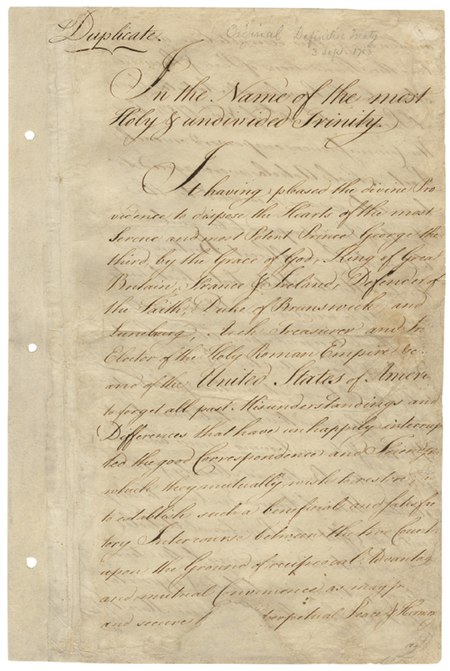 Duplicate.
Original Definitive Treaty
3 Sept. 1783
In the Name of the most
Holy & undivided Trinity.
It having pleased the divine Pro
vidence to dispose the Hearts of the most
Serene and most Potent Prince George the
third, by the Grace of God, King of Great
Britain, France & Ireland, Defender of
the Faith, Duke of Brunswick and
Lunebourg, Arch Treasurer and
Elector of the Holy Roman Empire &c.
and of the United States of Ameri
to forget all past Misunderstandings and
Differences that have unhappily interrup
ted the good Correspondence and Friends
which they mutually wish to restore,
to establish such a beneficial and satisfac
tory Intercourse between the two Count
upon the Ground of reciprocal Advantag
and mutual Convenience as may
and secure perpetual Peace & Harmon